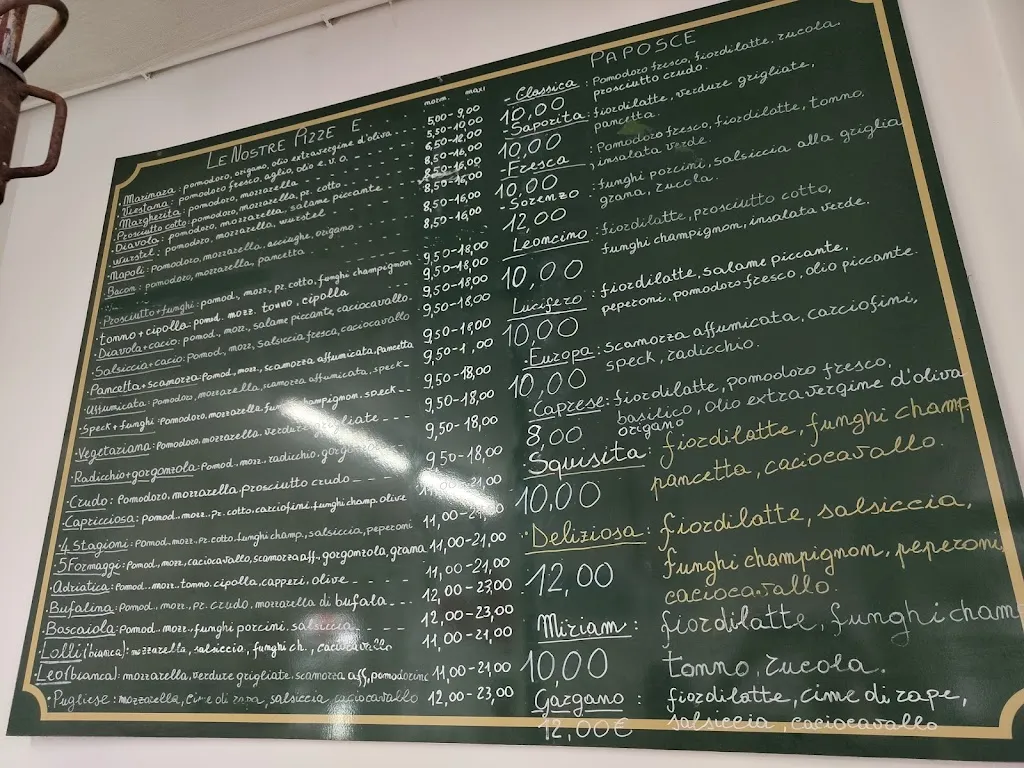 LE NOSTRE PIZZE E
norm. maxi
Marinara: pomodoro, origano, olio extravergine d'oliva 5,00-9,00
Viestana: pomodoro fresco, aglio, olio e.v.o. 5,50-10,00
Margherita: pomodoro, mozzarella 6,50-12,00
Prosciutto cotto: pomodoro, mozzarella, pr. cotto 8,50-16,00
Diavola: pomodoro, mozzarella, salame piccante 8,50-16,00
Wurstel: pomodoro, mozzarella, wurstel 8,50-16,00
Napoli: Pomodoro, mozzarella, acciughe, origano 8,50-16,00
Bacon: pomodoro, mozzarella, pancetta 8,50-16,00
Prosciutto+funghi: pomod., mozz, pr. cotto, funghi champignon 9,50-18,00
tonno+cipolla: pomod. mozz. tonno, cipolla 9,50-18,00
Diavola+cacio: pomod, mozz, salame piccante, caciocavallo 9,50-18,00
Salsiccia+cacio: Pomod, mozz, Salsiccia fresca, caciocavallo 9,50-18,00
Pancetta+scamorza: Pomod, mozz, scamorza affumicata, pancetta 9,50-18,00
Affumicata: Pomodoro, mozzarella, scamorza affumicata, speck 9,50-1 ,00
Speck+funghi: Pomodoro, mozzarella, funghi champignon, speck 9,50-18,00
Vegetariana: Pomodoro, mozzarella, verdure grigliate 9,50-18,00
Radicchio+gorgonzola: Pomod, mozz, radicchio, gorgonzola 9,50-18,00
Crudo: Pomodoro, mozzarella, prosciutto crudo 9,50-18,00
Capricciosa: Pomod., mozz., pr. cotto, carciofini, funghi champ. olive
4 Stagioni: Pomod., mozz, pr. cotto, funghi champ., salsiccia, peperoni 11,00-21,00
5 Formaggi: Pomod., mozz, caciocavallo, scamorza aff., gorgonzola, grana 11,00-21,00
Adriatica: Pomod., mozz. tonno, cipolla, capperi, olive 11,00-21,00
Bufalina: Pomod., mozz., pr. crudo, mozzarella di bufala 12,00-23,00
Boscaiola: Pomod., mozz., funghi porcini, salsiccia 12,00-23,00
Lolli (bianca): mozzarella, salsiccia, funghi ch., caciocavallo 11,00-21,00
Leo (bianca): mozzarella, verdure grigliate, scamorza aff, pomodorino 11,00-21,00
Pugliese: mozzarella, cime di rapa, salsiccia, caciocavallo 12,00-23,00
PAPOSCE
Classica: Pomodoro fresco, fiordilatte, rucola,
10,00 prosciutto crudo.
Saporita: fiordilatte, verdure grigliate,
10,00 pancetta.
Fresca: Pomodoro fresco, fiordilatte, tonno,
10,00 insalata verde.
Sorenzo: funghi porcini, salsiccia alla griglia
12,00 grana, rucola.
Leoncino: fiordilatte, prosciutto cotto,
10,00 funghi champignon, insalata verde.
Lucifero: fiordilatte, salame piccante,
10,00 peperoni, pomodoro fresco, olio piccante.
Europa: scamorza affumicata, carciofini,
10,00 speck, radicchio.
Caprese: fiordilatte, pomodoro fresco,
8,00 basilico, olio extravergine d'oliva
origano
Squisita: fiordilatte, funghi champ
10,00 pancetta, caciocavallo.
Deliziosa: fiordilatte, salsiccia,
12,00 funghi champignon, peperoni,
caciocavallo.
Miriam: fiordilatte, funghi cham
10,00 tonno, rucola.
Gargano: fiordilatte, cime di rape,
12,00€ salsiccia, caciocavallo